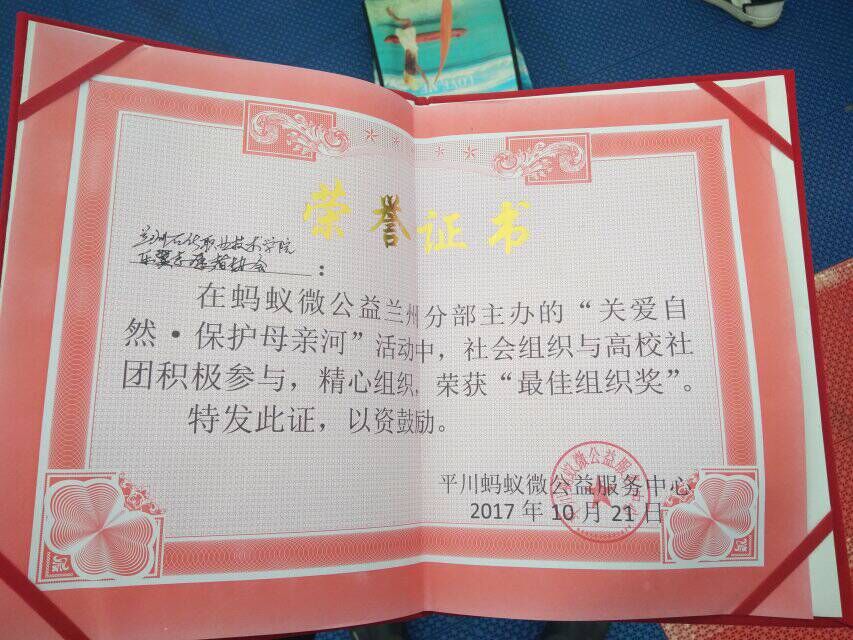 荣誉证书
兰州石化职业技术学院
乐翼志愿者协会：
在蚂蚁微公益兰州分部主办的“关爱自
然·保护母亲河”活动中，社会组织与高校社
团积极参与，精心组织，荣获“最佳组织奖”。
特发此证，以资鼓励。
平川蚂蚁微公益服务中心
2017 年 10 月 21 日